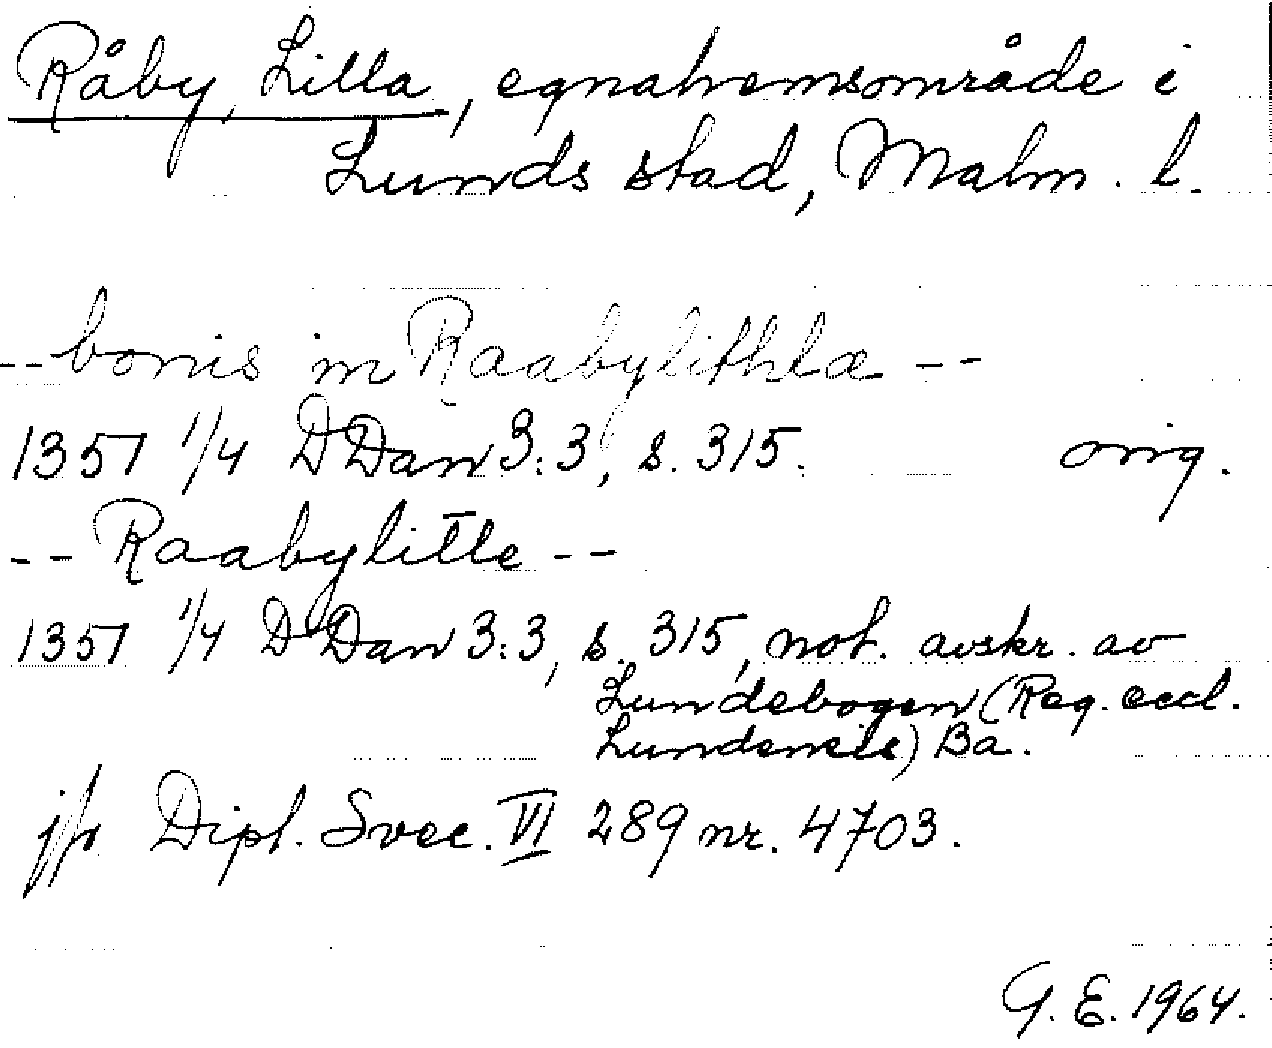 Råby, Lilla, egnahemsområde i
Lunds stad, Malm. l.
-- bonis in Raabylithlæ --
1351 1/4 DDan 3:3, s. 315. orig.
-- Raabylitle --
1351 1/4 DDan 3:3, s. 315, not. avskr. av
Lundebogen (Reg. eccl.
Lundensis) Ba.
jfr Dipl. Svec. VI 289 nr. 4703.
G. E. 1964.